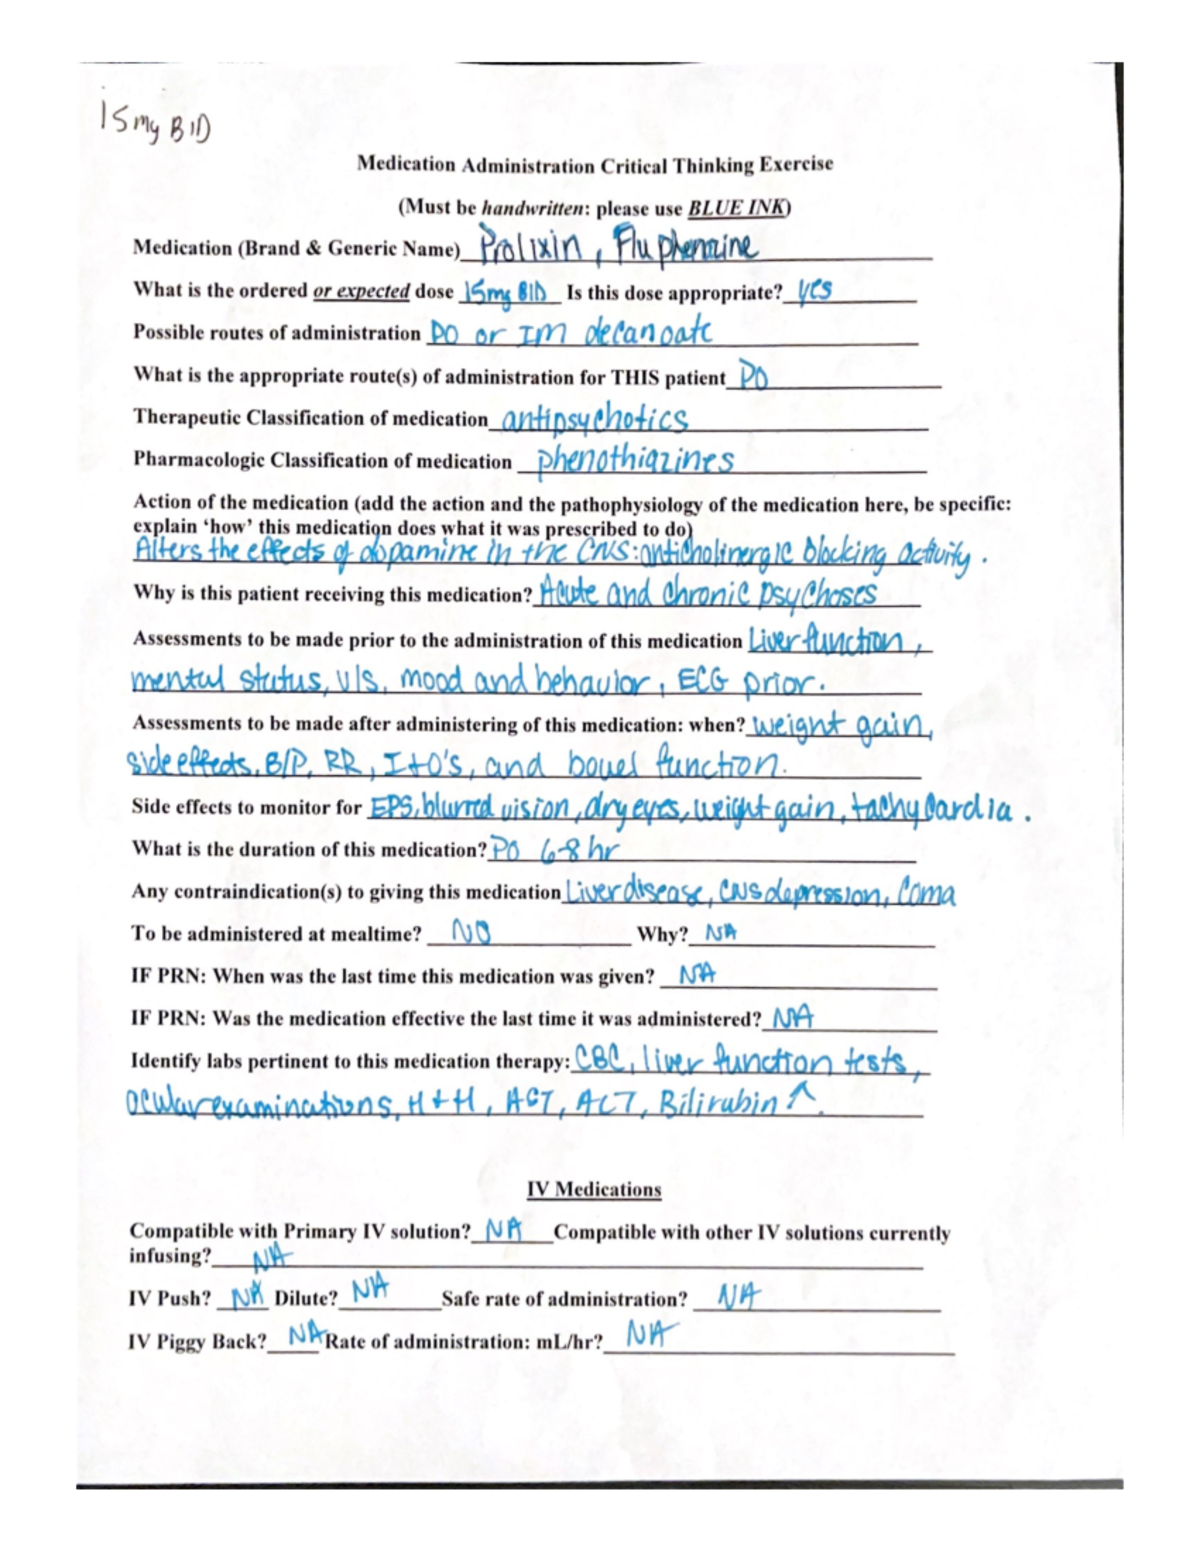 15mg BID
Medication Administration Critical Thinking Exercise
(Must be handwritten: please use BLUE INK)
Medication (Brand & Generic Name) Prolixin, Fluphenazine
What is the ordered or expected dose 15mg BID Is this dose appropriate? yes
Possible routes of administration PO or IM decanoate
What is the appropriate route(s) of administration for THIS patient PO
Therapeutic Classification of medication antipsychotics
Pharmacologic Classification of medication phenothiazines
Action of the medication (add the action and the pathophysiology of the medication here, be specific:
explain ‘how’ this medication does what it was prescribed to do)
Alters the effects of dopamine in the CNS: anticholinergic blocking activity.
Why is this patient receiving this medication? Acute and chronic psychoses
Assessments to be made prior to the administration of this medication Liver function,
mental status, V/S, mood and behavior, ECG prior.
Assessments to be made after administering of this medication: when? weight gain,
side effects, B/P, RR, I+O's, and bowel function.
Side effects to monitor for EPS, blurred vision, dry eyes, weight gain, tachycardia.
What is the duration of this medication? PO 6-8 hr
Any contraindication(s) to giving this medication Liver disease, CNS depression, Coma
To be administered at mealtime? NO Why? NA
IF PRN: When was the last time this medication was given? NA
IF PRN: Was the medication effective the last time it was administered? NA
Identify labs pertinent to this medication therapy: CBC, liver function tests,
ocular examinations, H+H, AST, ALT, Bilirubin ↑.
IV Medications
Compatible with Primary IV solution? NA Compatible with other IV solutions currently
infusing? NA
IV Push? NA Dilute? NA Safe rate of administration? NA
IV Piggy Back? NA Rate of administration: mL/hr? NA